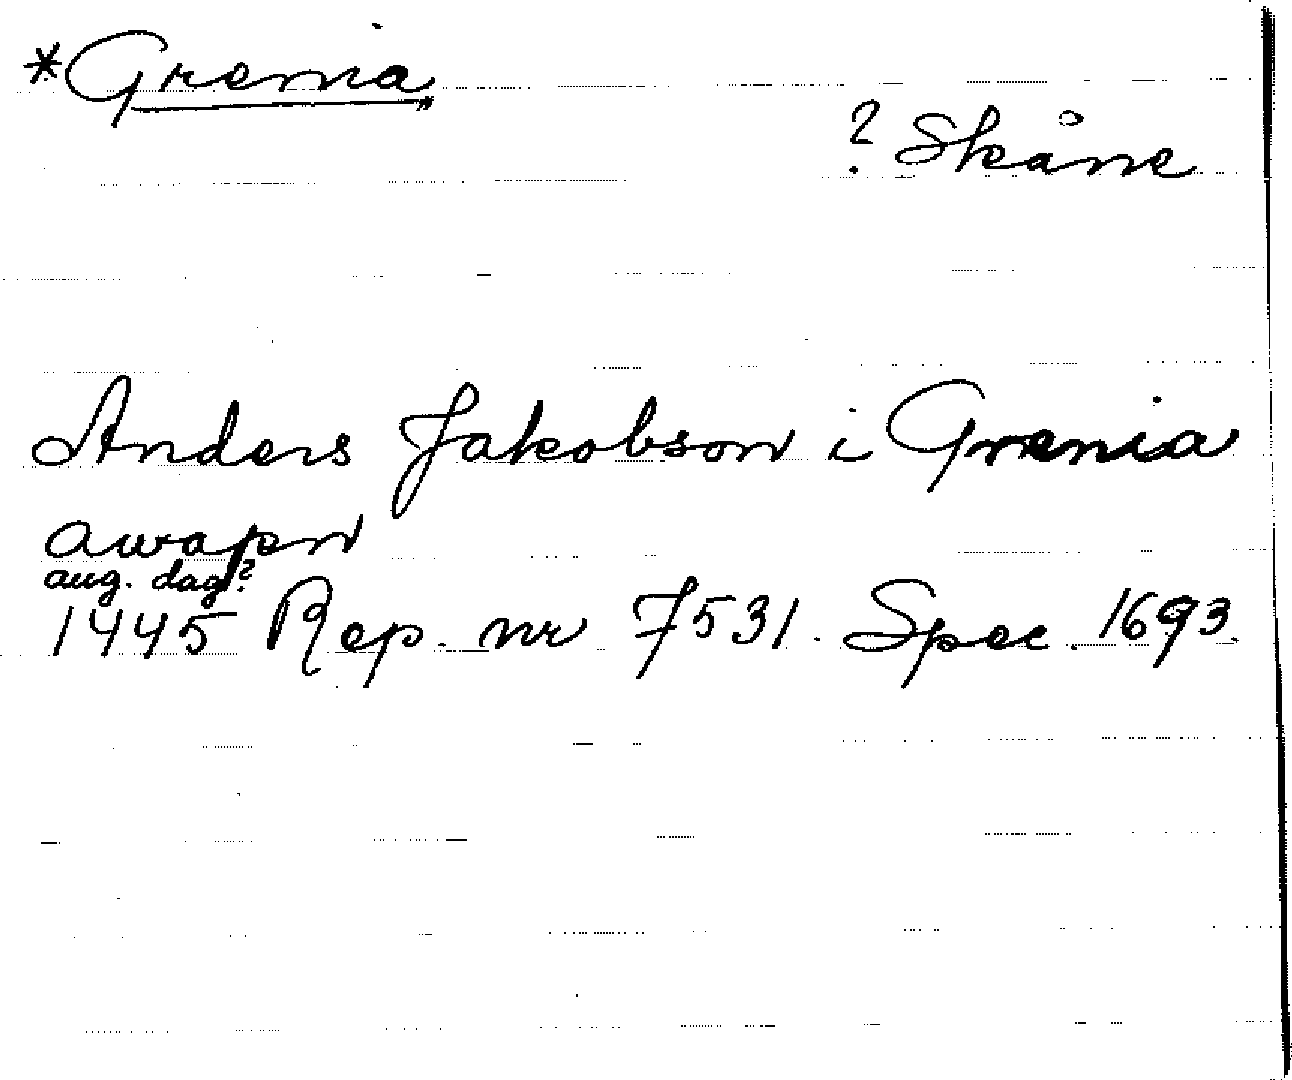 *Grenia
? Skåne
Anders Jakobson i Grenia
awapn
aug. dag?
1445 Rep. nr 7531. Spec. 1693.